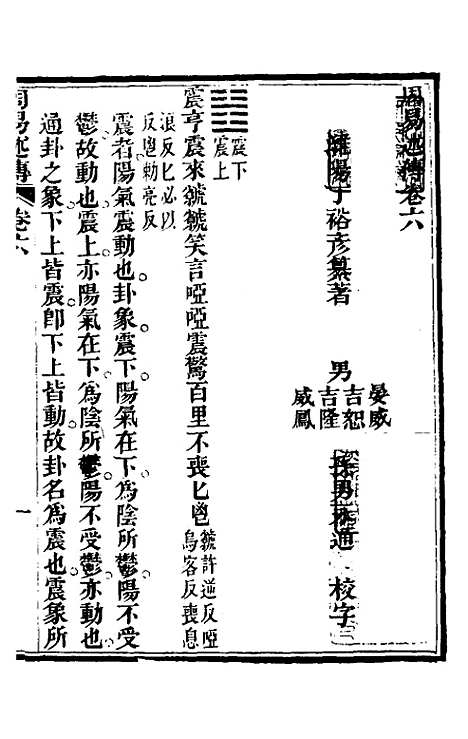 周易述傳卷六
丁裕彥纂著 男 晏威 吉恕 吉隆 威鳳 通 校字
震下
震上
震亨震來虩虩笑言啞啞震驚百里不喪匕鬯虩許逆反啞
烏客反喪息
浪反匕必以
反鬯勅亮反
震者陽氣震動也卦象震下陽氣在下為陰所鬱陽不受
鬱故動也震上亦陽氣在下為陰所鬱陽不受鬱亦動也
通卦之象下上皆震卽下上皆動故卦名為震也震象所
周易述傳 卷六 一